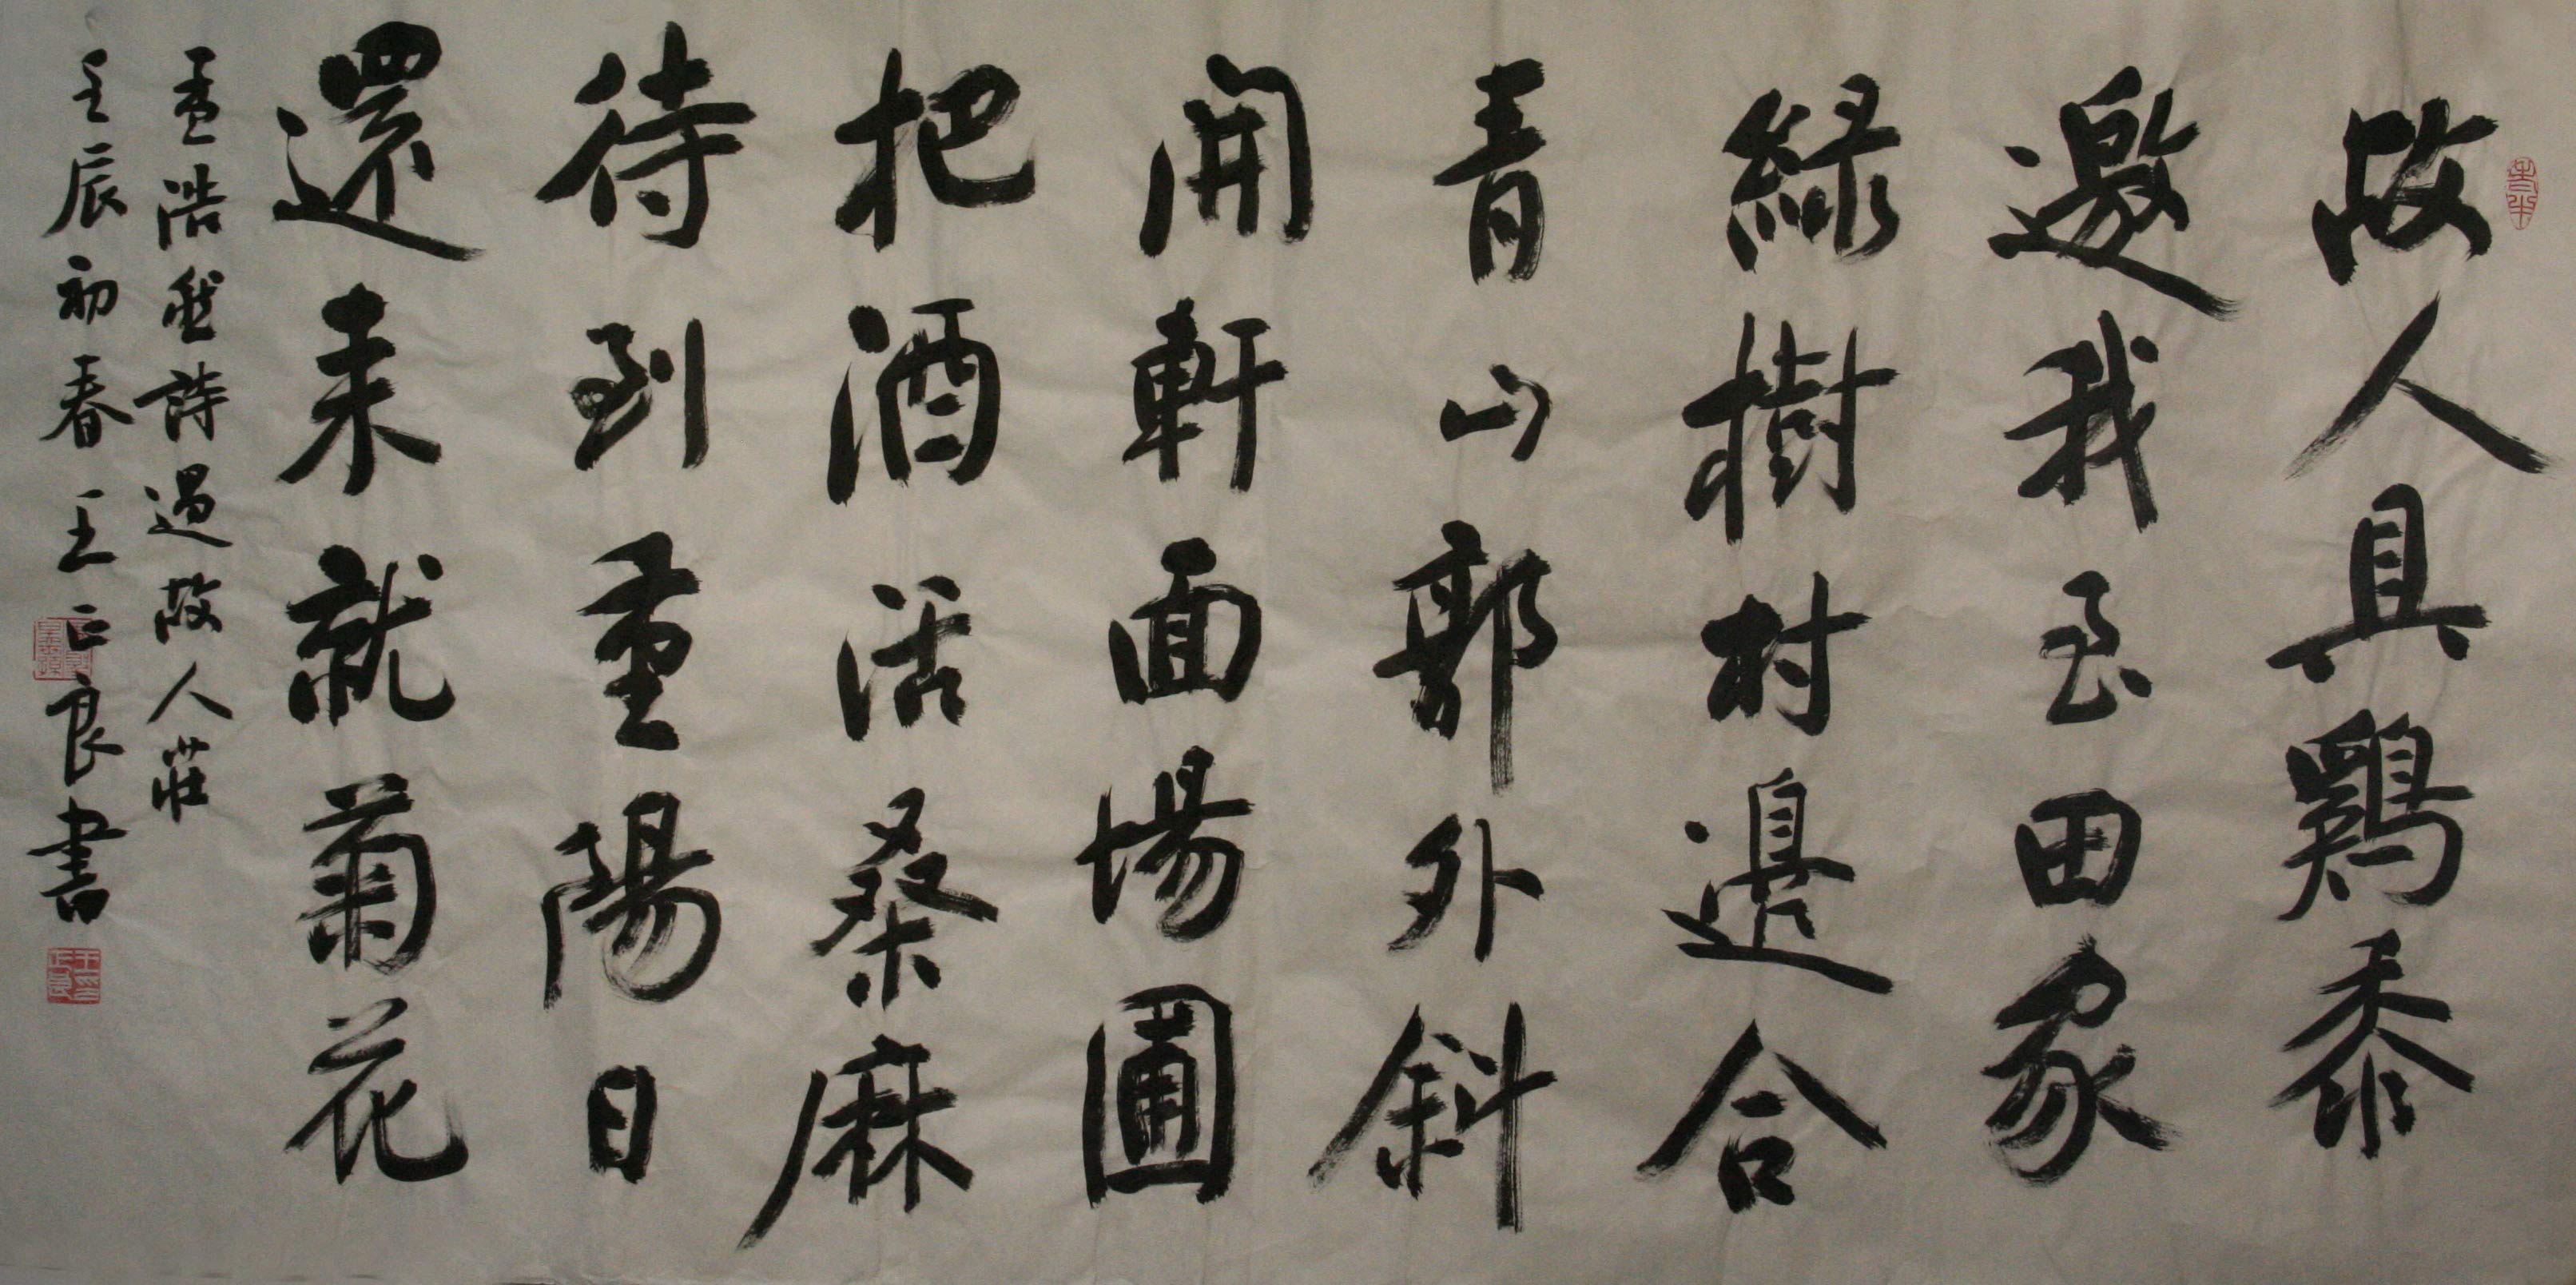 故人具鷄黍
邀我至田家
綠樹村邊合
青山郭外斜
開軒面場圃
把酒話桑麻
待到重陽日
還來就菊花
孟浩然詩過故人莊
壬辰初春王正良書
王印正良